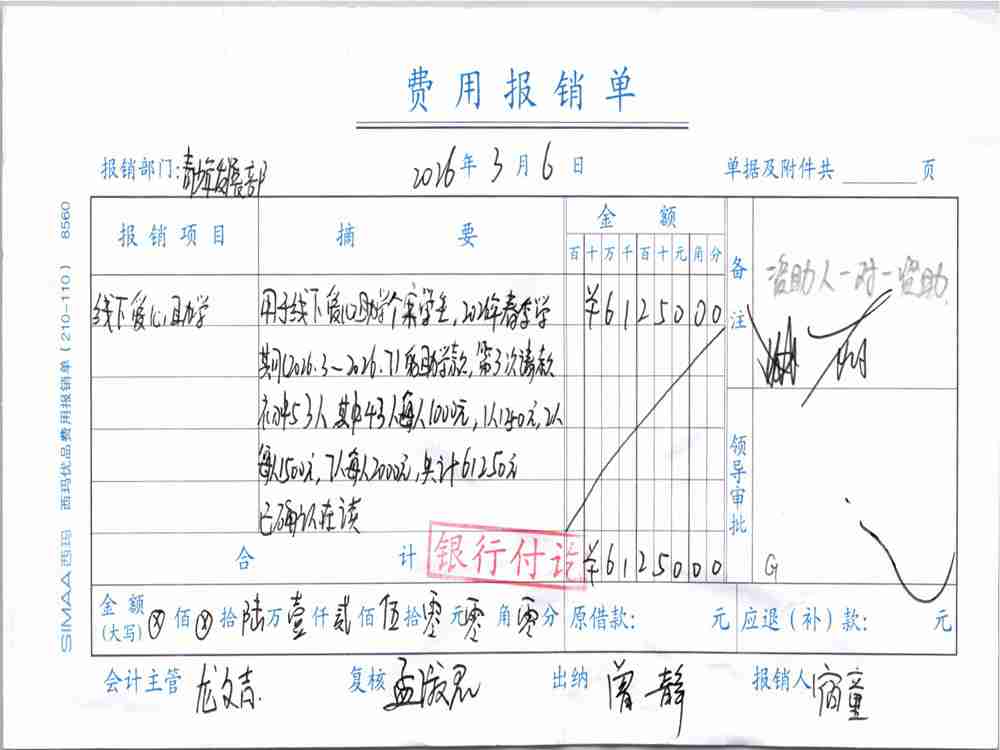 费用报销单
报销部门:青少年发展部 2026年3月6日 单据及附件共 页
报销项目 摘要 金额 备注
百十万千百十元角分
资助人一对一资助
线下爱心助学 用于线下爱心助学个案学生,2026年春季学 ¥6125000
期(2026.3~2026.7)的助学款,第3次请款
初中53人 其中43人每人1000元,1人1250元,2人
每人1500元,7人每人2000元,共计61250元
已确认在读
领导审批
合计 银行付讫 ¥6125000
金额(大写)ⓧ佰ⓧ拾陆万壹仟贰佰伍拾零元零角零分 原借款: 元 应退(补)款: 元
会计主管 龙文青 复核 孟 出纳 曾静 报销人 宿童
SIMAA西玛 西玛优品费用报销单(210-110) 8560